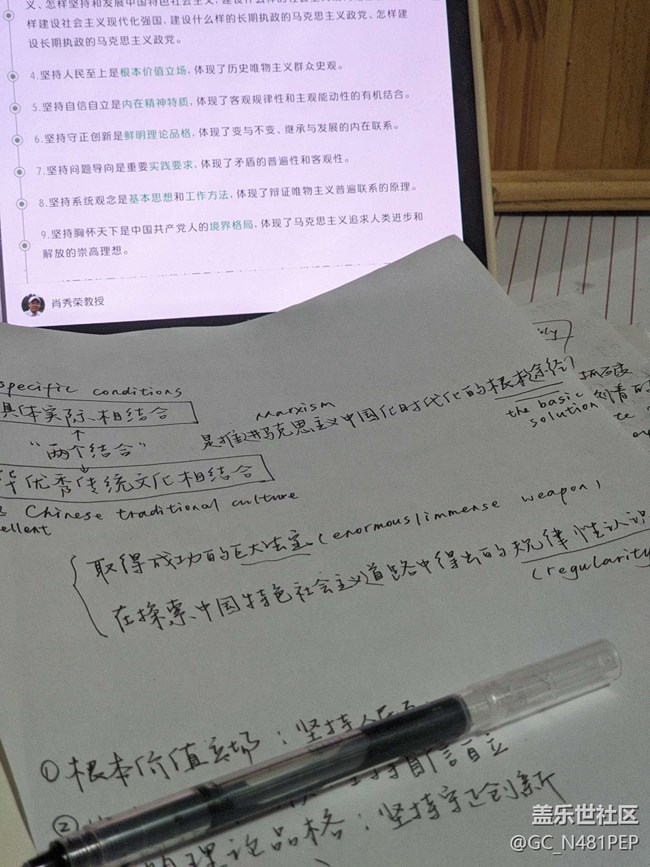 义、怎样坚持和发展中国特色社会主义,建设什么样的社会主义现代化强国、怎
样建设社会主义现代化强国,建设什么样的长期执政的马克思主义政党、怎样建
设长期执政的马克思主义政党。
4.坚持人民至上是根本价值立场,体现了历史唯物主义群众史观。
5.坚持自信自立是内在精神特质,体现了客观规律性和主观能动性的有机结合。
6.坚持守正创新是鲜明理论品格,体现了变与不变、继承与发展的内在联系。
7.坚持问题导向是重要实践要求,体现了矛盾的普遍性和客观性。
8.坚持系统观念是基本思想和工作方法,体现了辩证唯物主义普遍联系的原理。
9.坚持胸怀天下是中国共产党人的境界格局,体现了马克思主义追求人类进步和
解放的崇高理想。
肖秀荣教授
specific conditions
具体实际相结合
"两个结合"
华优秀传统文化相结合
Chinese traditional culture
ellent
marxism
是推进马克思主义中国化时代化的根本途径
the basic
solution
取得成功的巨大法宝(enormous/immense weapon)
在探索中国特色社会主义道路中得出的规律性认识
(regularity
①根本价值立场:坚持人民
②
坚持自信自立
理论品格:坚持守正创新
盖乐世社区
@GC_N481PEP